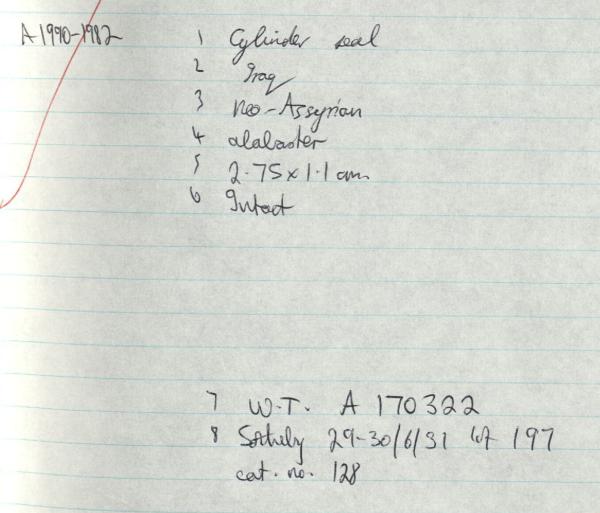 A1990-1982
1 Cylinder seal
2 Iraq
3 neo-Assyrian
4 alabaster
5 2.75 x 1.1 cm
6 Intact
7 W.T. A 170322
8 Sotheby 29-30/6/31 lot 197
cat. no. 128